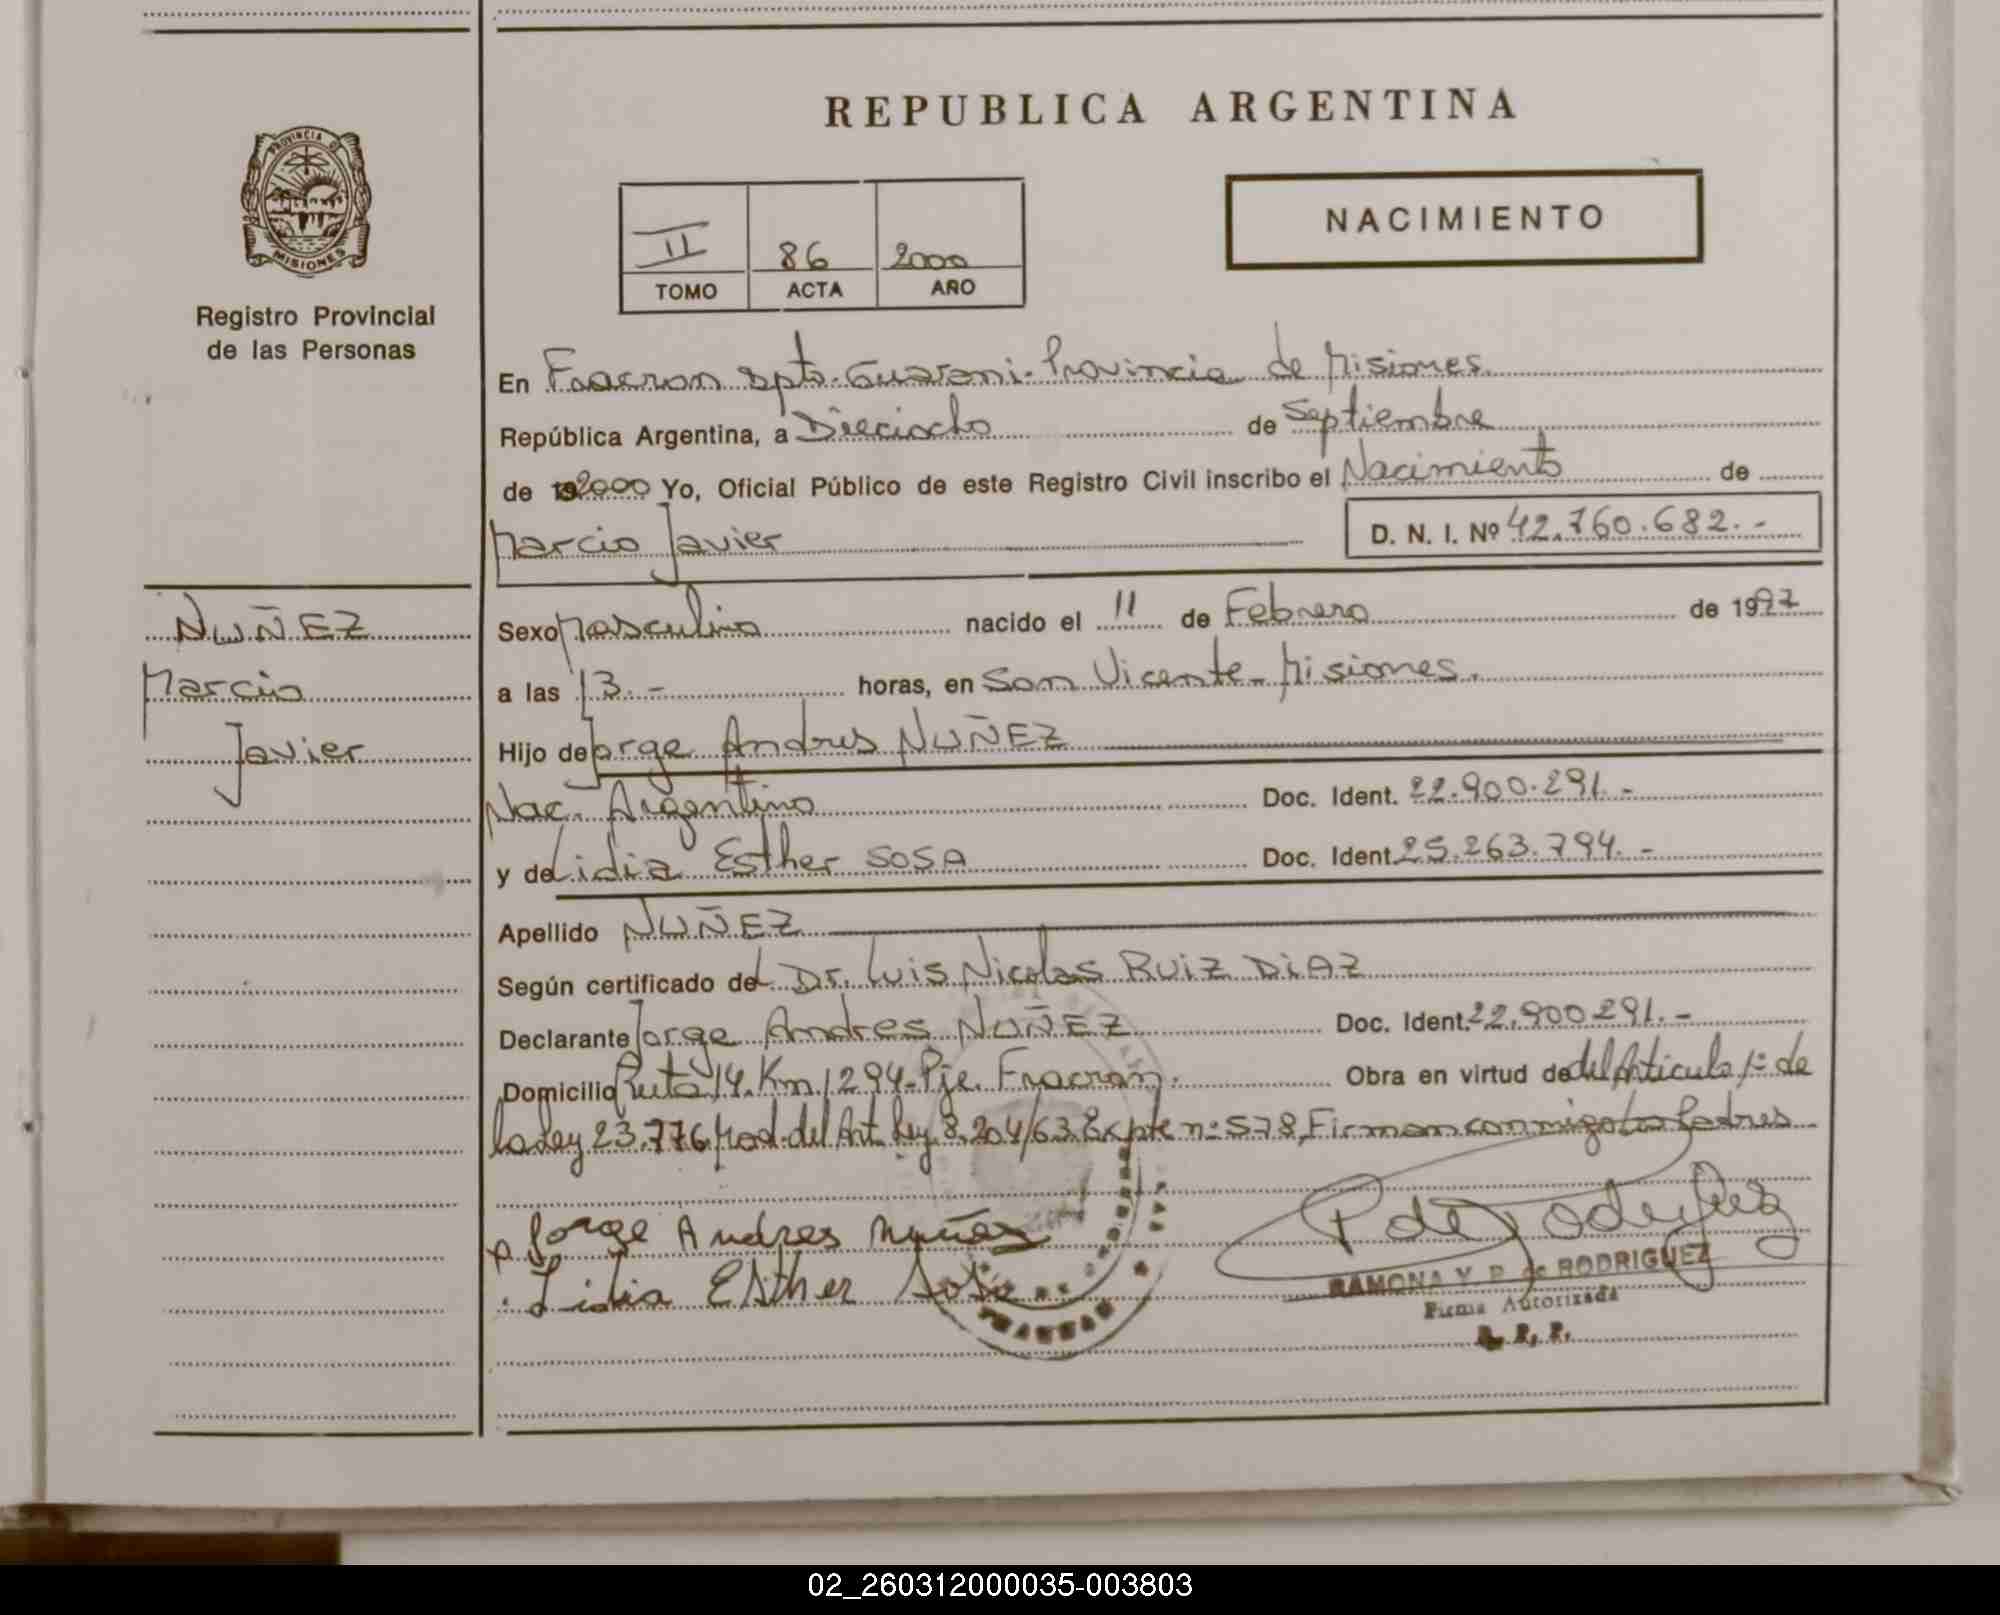 REPUBLICA ARGENTINA
PROVINCIA DE
MISIONES
Registro Provincial
de las Personas
NACIMIENTO
II 86 2000
TOMO ACTA AÑO
En Fracran Dpto. Guarani. Provincia de Misiones.
República Argentina, a Dieciocho de Septiembre
de 192000 Yo, Oficial Público de este Registro Civil inscribo el Nacimiento de
Marcio Javier
D. N. I. Nº 42.760.682.-
NUÑEZ
Marcio
Javier
Sexo Masculino nacido el 11 de Febrero de 1997
a las 13.- horas, en San Vicente - Misiones.
Hijo de Jorge Andres NUÑEZ
Nac. Argentino Doc. Ident. 22.900.291.-
y de Lidia Esther SOSA Doc. Ident. 25.263.794.-
Apellido NUÑEZ
Según certificado del Dr. Luis Nicolas RUIZ DIAZ
Declarante Jorge Andres NUÑEZ Doc. Ident. 22.900.291.-
Domicilio Ruta 14. Km 1294 - Pje. Fracran. Obra en virtud de del Articulo 1º de
la Ley 23.776 Mod. del Art. Ley 8.204/63 Expte nº 578, Firman conmigo los Padres
Jorge Andres Nuñez
Lidia Esther Sosa
P de Rodriguez
RAMONA Y. P. de RODRIGUEZ
Firma Autorizada
R. P. P.
FRACRAN
02_260312000035-003803